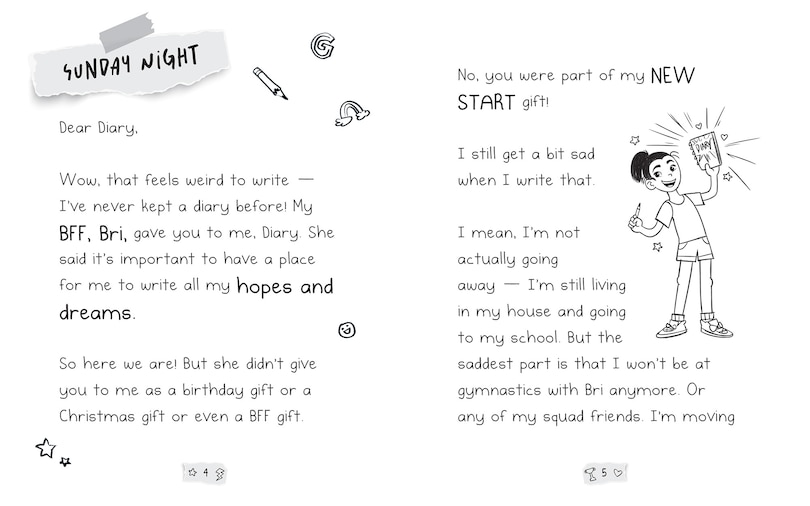 SUNDAY NiGHT
Dear Diary,
Wow, that feels weird to write —
I've never kept a diary before! My
BFF, Bri, gave you to me, Diary. She
said it's important to have a place
for me to write all my hopes and
dreams.
So here we are! But she didn't give
you to me as a birthday gift or a
Christmas gift or even a BFF gift.
4
G
No, you were part of my NEW
START gift!
I still get a bit sad
when I write that.
DIARY
I mean, I'm not
actually going
away — I'm still living
in my house and going
to my school. But the
saddest part is that I won't be at
gymnastics with Bri anymore. Or
any of my squad friends. I'm moving
5